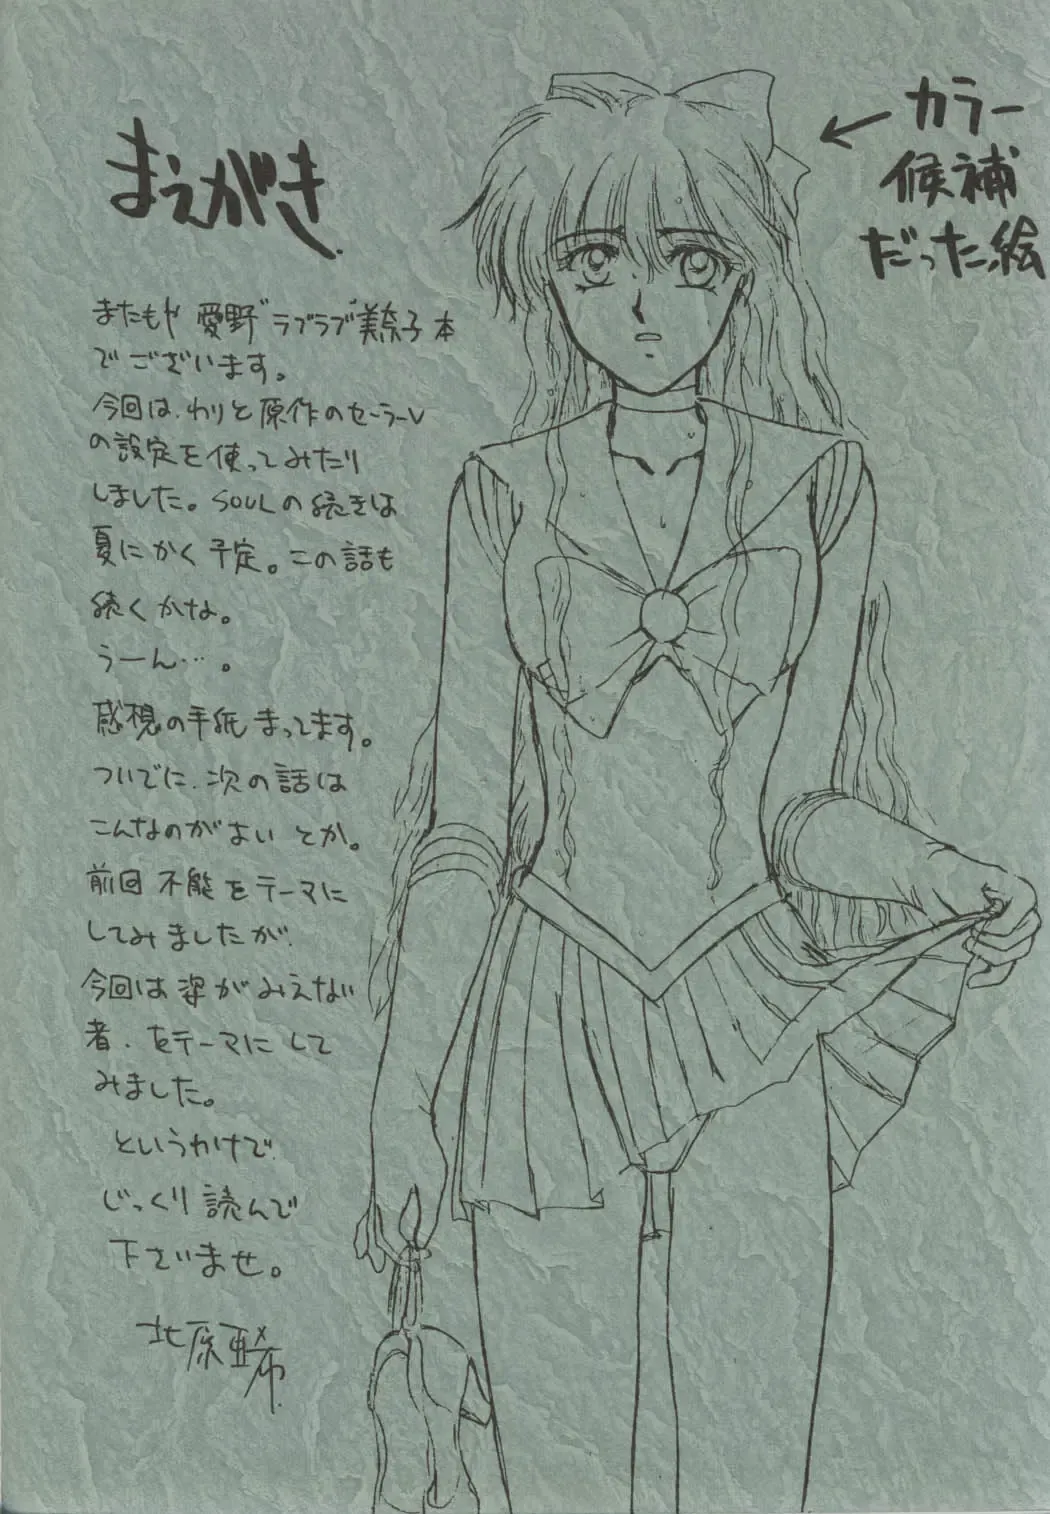 まえがき.
またもや 愛野"ラブラブ"美奈子 本
でございます。
今回は、わりと原作のセーラーV
の設定を使ってみたり
しました。SOULの続きは
夏にかく予定。この話も
続くかな。
うーん…。
感想の手紙まってます。
ついでに、次の話は
こんなのがよい とか。
前回 不能をテーマに
してみましたが、
今回は 姿がみえない
者、をテーマにして
みました。
というわけで
じっくり読んで
下さいませ。
北原亜希
←カラー
候補
だった絵